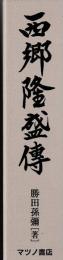 西郷隆盛傳
勝田孫彌[著]
マツノ書店